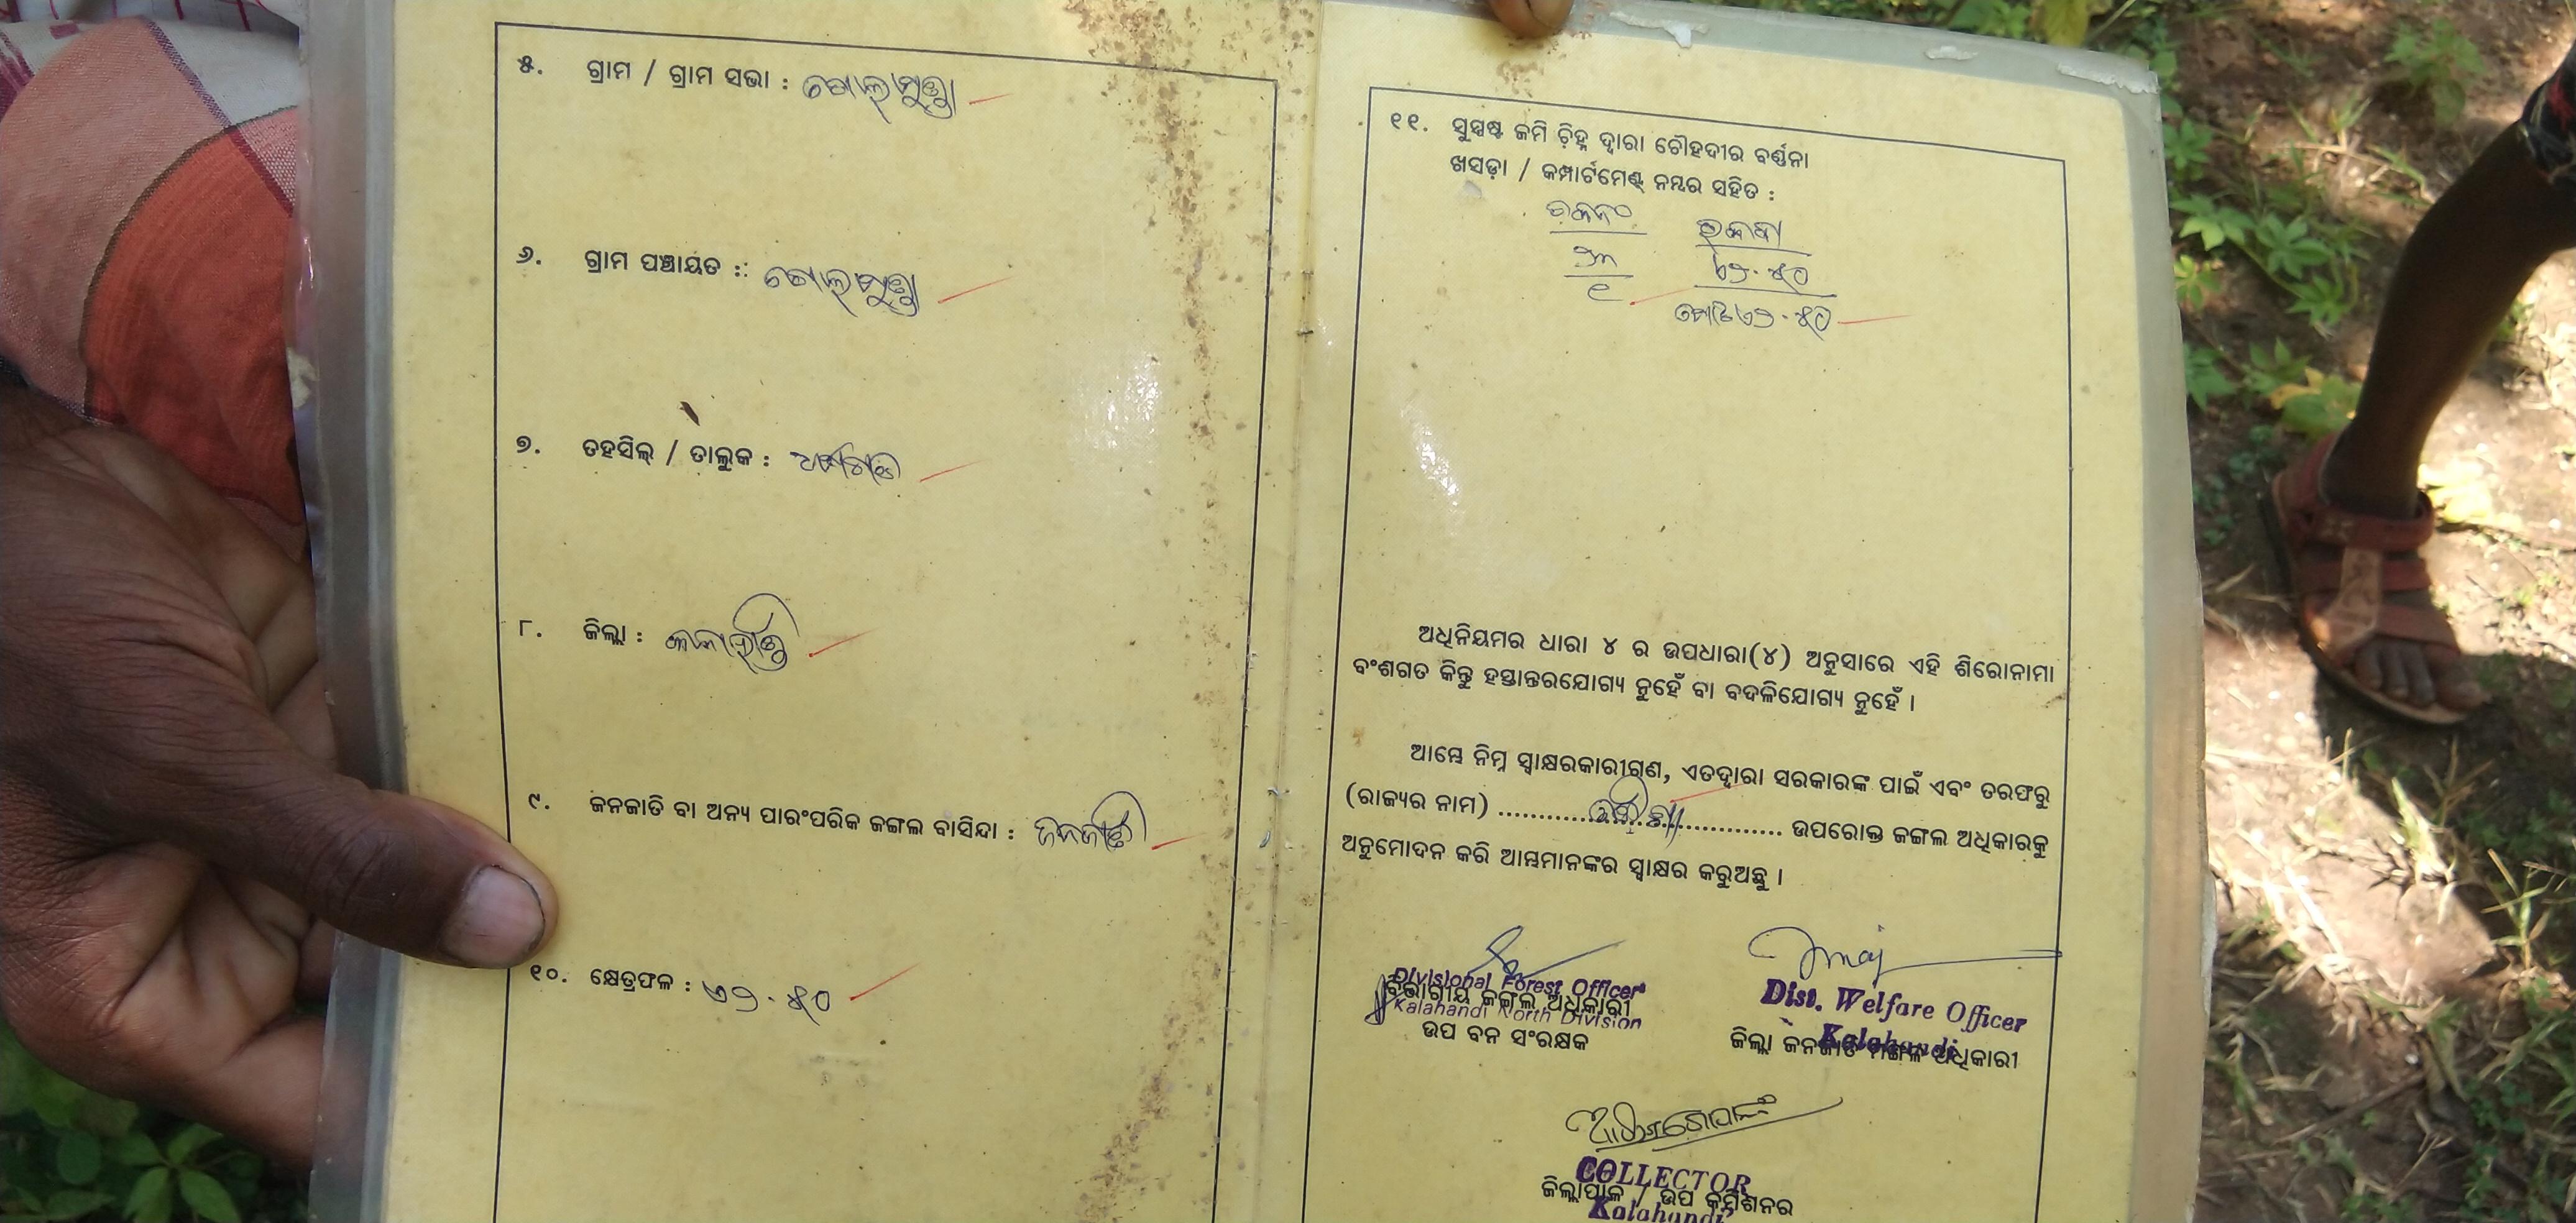 ୫. ଗ୍ରାମ / ଗ୍ରାମ ସଭା : ଗୋଲାମୁଣ୍ଡା
୬. ଗ୍ରାମ ପଞ୍ଚାୟତ :: ଗୋଲାମୁଣ୍ଡା
୭. ତହସିଲ୍ / ତାଲୁକ : ଧର୍ମଗଡ
୮. ଜିଲ୍ଲା : କଳାହାଣ୍ଡି
୯. ଜନଜାତି ବା ଅନ୍ୟ ପାରଂପରିକ ଜଙ୍ଗଲ ବାସିନ୍ଦା : ଜନଜାତି
୧୦. କ୍ଷେତ୍ରଫଳ :
୧୧. ସୁସ୍ପଷ୍ଟ ଜମି ଚ଼ିହ୍ନ ଦ୍ଵାରା ଚୌହଦୀର ବର୍ଣ୍ଣନା
ଖସଡ଼ା / କମ୍ପାର୍ଟମେଣ୍ଟ୍ ନମ୍ବର ସହିତ :
ରକବା
ଅଧିନିୟମର ଧାରା ୪ ର ଉପଧାରା(୪) ଅନୁସାରେ ଏହି ଶିରୋନାମା
ବଂଶଗତ କିନ୍ତୁ ହସ୍ତାନ୍ତରଯୋଗ୍ୟ ନୁହେଁ ବା ବଦଳିଯୋଗ୍ୟ ନୁହେଁ ।
ଆମ୍ଭେ ନିମ୍ନ ସ୍ୱାକ୍ଷରକାରୀଗଣ, ଏତଦ୍ୱାରା ସରକାରଙ୍କ ପାଇଁ ଏବଂ ତରଫରୁ
(ରାଜ୍ୟର ନାମ) ........ଓଡ଼ିଶା........ ଉପରୋକ୍ତ ଜଙ୍ଗଲ ଅଧିକାରକୁ
ଅନୁମୋଦନ କରି ଆମ୍ଭମାନଙ୍କର ସ୍ୱାକ୍ଷର କରୁଅଛୁ ।
Divisional Forest Officer
ବିଭାଗୀୟ ଜଙ୍ଗଲ ଅଧିକାରୀ
Kalahandi North Division
ଉପ ବନ ସଂରକ୍ଷକ
Dist. Welfare Officer
Kalahandi
ଜିଲ୍ଲା ଜନଜାତି ମଙ୍ଗଳ ଅଧିକାରୀ
COLLECTOR
ଜିଲ୍ଲାପାଳ / ଉପ କମିଶନର
Kalahandi